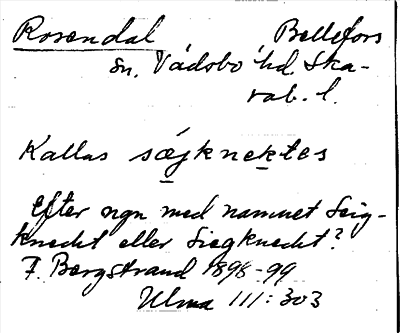 Rosendal Bellefors
sn. Vadsbo hd. Ska-
rab. l.
Kallas sǿjknektes
Efter ngn med namnet Seig-
knecht eller Siegknecht?
F. Bergstrand 1898-99
Ulma 111:303